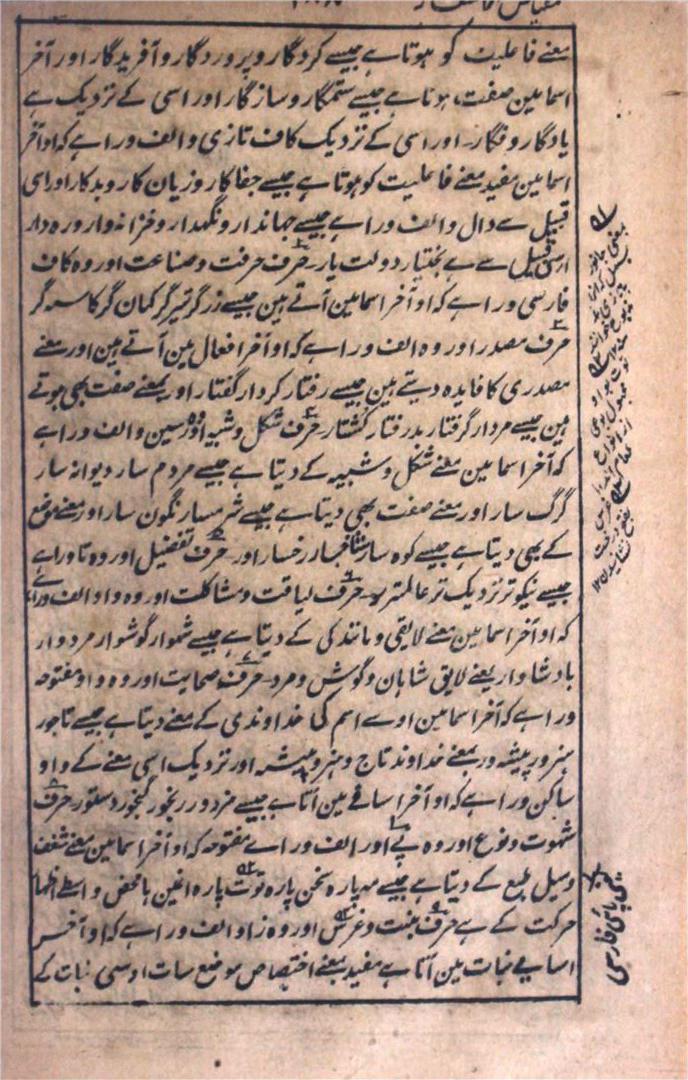 معنے فاعلیت کو ہوتا ہے جیسے کردگار و پروردگار و آفریدگار اور آخر
اسما مین صفت ہوتا ہے جیسے ستمگار و سازگار اور اسی کے نزدیک ہے
یادگار و فگار۔ اور اسی کے نزدیک کاف تازی و الف و را ہے کہ او آخر
اسما مین مفید معنے فاعلیت کو ہوتا ہے جیسے جفاکار و زیان کار و بدکار اور اسی
قبیل سے دال و الف و را ہے جیسے جہاندار و نگہدار و خزانہ دار و رہ دار
اسی قبیل سے ہے بختیار دولت یار۔ حرف حرفت و صناعت اور وہ کاف
فارسی و را ہے کہ او آخر اسما مین آتے ہین جیسے زرگر تیرگر کمان گر کاسہ گر
حرف مصدر اور وہ الف و را ہے کہ او آخر افعال مین آتے ہین اور معنے
مصدری کا فایدہ دیتے ہین جیسے رفتار کردار گفتار اور بمعنے صفت بھی ہوتے
ہین جیسے مردار گرفتار بدرفتار کشتار۔ حرف شکل و شبیہ اور وہ سین و الف و را ہے
کہ آخر اسما مین معنے شکل و شبیہ کے دیتا ہے جیسے مردم سار دیوانہ سار
گرگ سار اور معنے صفت بھی دیتا ہے جیسے شرمسار نگون سار اور معنے موضع
کے بھی دیتا ہے جیسے کوہ سار شاخسار رخسار اور۔ حرف تفضیل اور وہ تا و را ہے
جیسے نیکوتر نزدیک تر عالمتر۔ حرف لیاقت و مشاکلت اور وہ واو الف و را ہے
کہ او آخر اسما مین معنے لایقی و مانندگی کے دیتا ہے جیسے شہوار گوشوار مردوار
بادشاوار یعنے لایق شاہان و گوش و مرد۔ حرف صحابت اور وہ واو مفتوحہ
و را ہے کہ آخر اسما مین اوسے اسم کی خداوندی کے معنے دیتا ہے جیسے تاجور
ہنرور پیشہ ور بمعنے خداوند تاج و ہنر و پیشہ اور نزدیک اسی معنے کے واو
ساکن و را ہے کہ او آخر اسمائے مین آتا ہے جیسے مزدور رنجور گنجور دستور حرف
شہوت و نوع اور وہ پے اور الف و راے مفتوحہ کہ او آخر اسما مین معنے شغف
و میل طبع کے دیتا ہے جیسے مہپارہ سخن پارہ توت پارہ اغین با محض واسطے اظہار
حرکت کے ہے حرف منبت و غرس اور وہ زا و الف و را ہے کہ او آخر
اسمایے نبات مین آتا ہے مفید بمعنے اختصاص موضع سات اوسی نبات کے
یعنی پائی فارسی